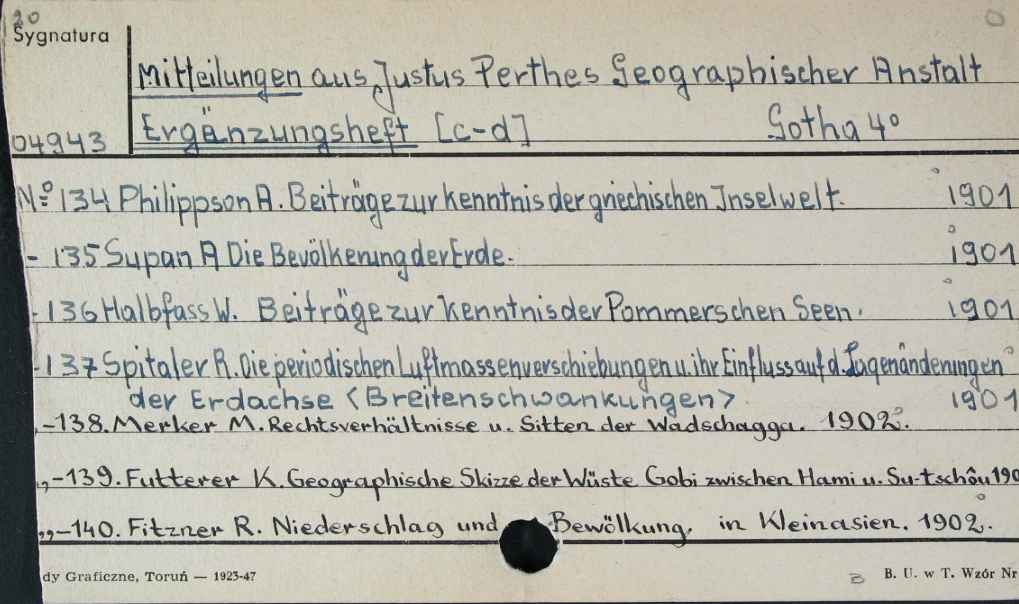 20
Sygnatura
Mitteilungen aus Justus Perthes Geographischer Anstalt
04943 Ergänzungsheft [c-d] Gotha 4°
Nº 134 Philippson A. Beiträge zur Kenntnis der griechischen Inselwelt. 1901
- 135 Supan A Die Bevölkerung der Erde. 1901
- 136 Halbfass W. Beiträge zur Kenntnis der Pommerschen Seen. 1901
- 137 Spitaler R. Die periodischen Luftmassenverschiebungen u. ihr Einfluss auf d. Lagenänderungen
der Erdachse <Breitenschwankungen> 1901
„-138. Merker M. Rechtsverhältnisse u. Sitten der Wadschagga. 1902.
„-139. Futterer K. Geographische Skizze der Wüste Gobi zwischen Hami u. Su-tschôu 190
„-140. Fitzner R. Niederschlag und Bewölkung. in Kleinasien. 1902.
dy Graficzne, Toruń — 1923-47 B. U. w T. Wzór Nr